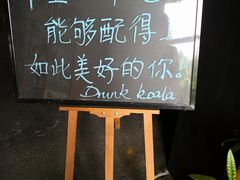 能够配得上
如此美好的你!
Drunk koala